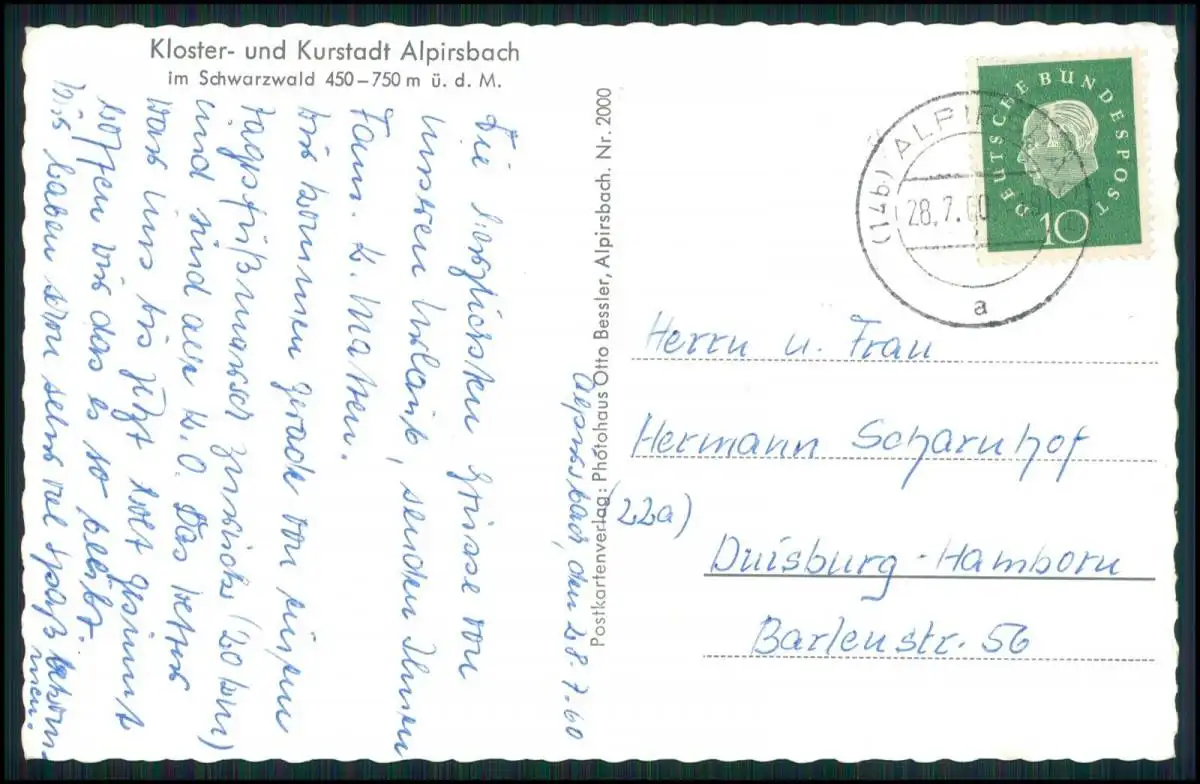 Kloster- und Kurstadt Alpirsbach
im Schwarzwald 450–750 m ü. d. M.
Alpirsbach, den 28.7.60
Die herzlichsten Grüsse von
unseren Urlaub, senden Ihnen
Fam. H. Matten.
Wir kommen gerade von einem
Tagesfußmarsch zurück (20 km)
und sind alle K.O. Das Wetter
war uns bis jetzt holt gesinnt
hoffen wir das es so bleibt.
Wir haben schon sehr viel Spaß bekom-
men.
Postkartenverlag: Photohaus Otto Bessler, Alpirsbach. Nr. 2000
DEUTSCHE BUNDESPOST
10
(14b) ALPIR
28.7.60
a
Herrn u. Frau
Hermann Scharnhof
(22a)
Duisburg-Hamborn
Barlenstr. 56